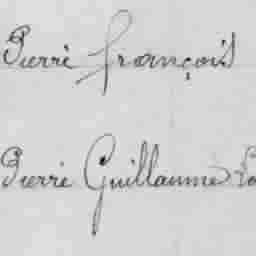 Pierre françois
Pierre Guillaume